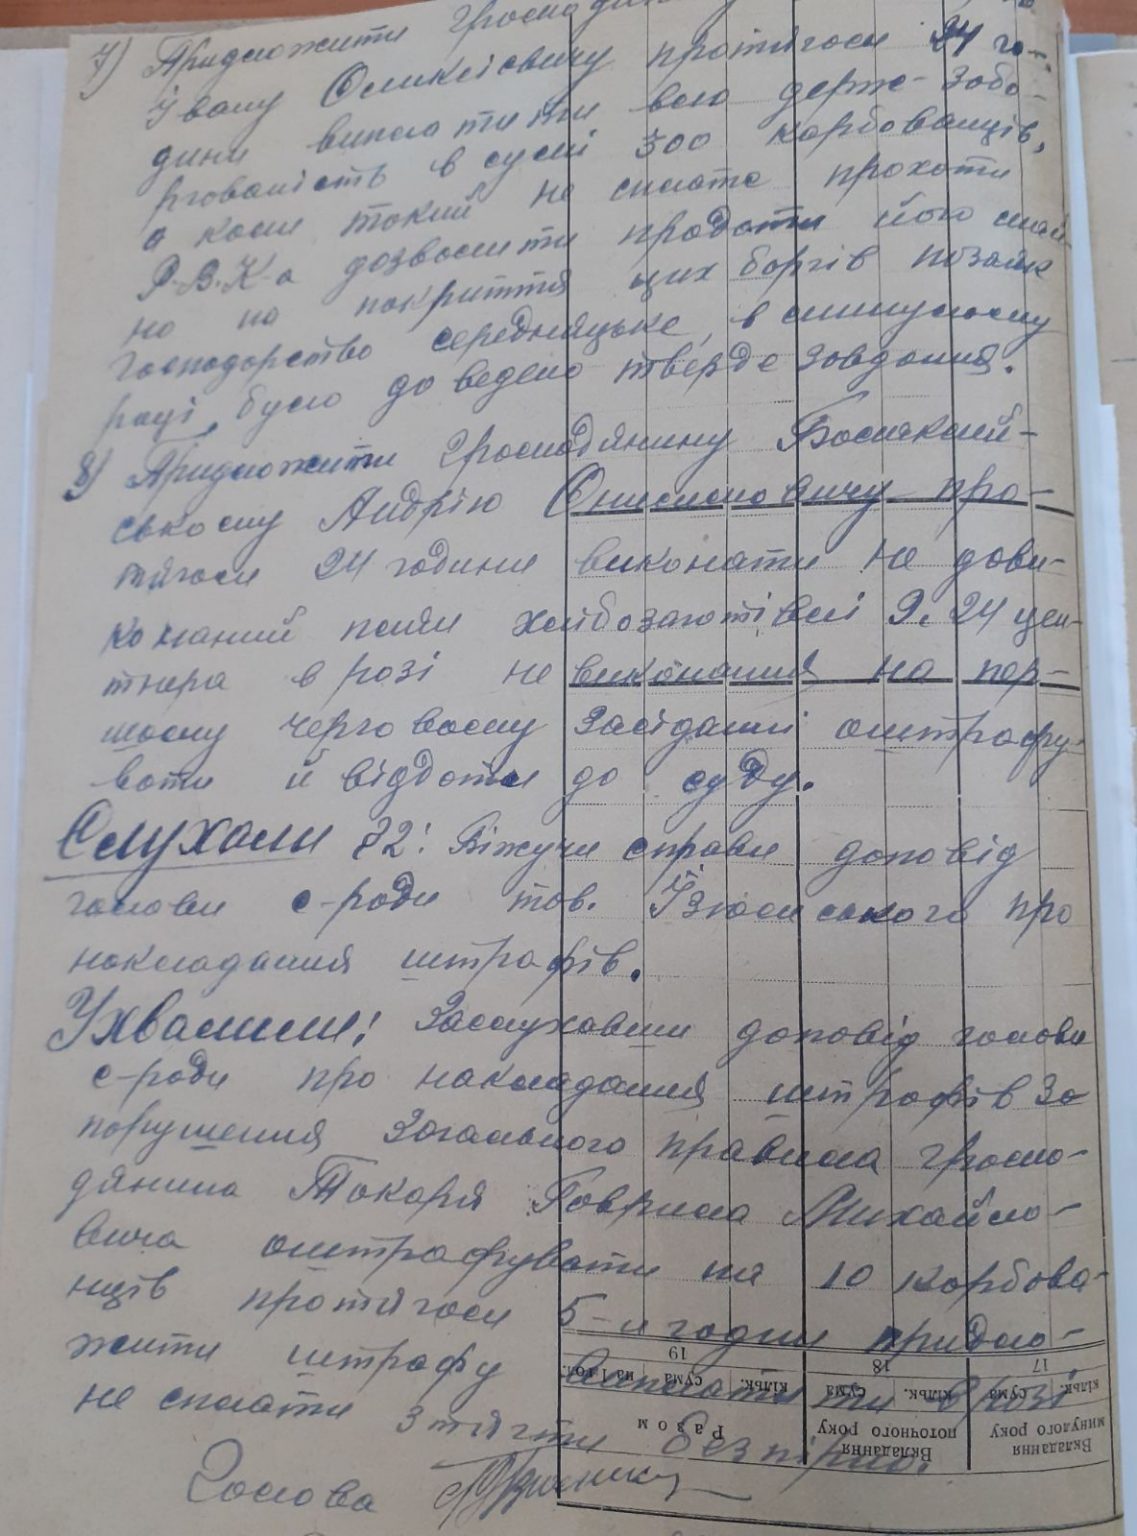 7) Придложити Громадяни
Івану Оликсієвичу протягом 24 го-
дини виплатити всю держ-забо-
ргованість в сумі 300 карбованців,
а коли такий не сплате прохати
Р.В.К-а дозволити продати його май-
но на покриття цих боргів позаяк
господарство середняцьке, в минулому
році було до ведено тверде завдання.
8) Придложити Громадянину
ському Андрію Онисимовичу про-
тягом 24 години виконати не дови-
конаний плян хлібозаготівлі 9.24 цен-
тнера в розі не виконання на пер-
шому черговому засіданні оштрафу-
вати й віддати до суду.
Слухали 72: Біжучи справи доповід
голови с-ради тов. про
накладання штрафів.
Ухвалили: Заслухавши доповід голови
с-ради про накладання штрафів за
порушення загального правила грома-
дянина Токаря Гаврила Михайло-
вича оштрафувати на 10 карбова-
нців протягом 5-и годин придло-
жити штрафу виплатити в розі
не сплати з тягти безпірно.
Голова
19
Разом
кільк.
сума
на 1 гол.
18
Вкладання
поточного року
кільк.
сума
17
Вкладання
минулого року
кільк.
сума